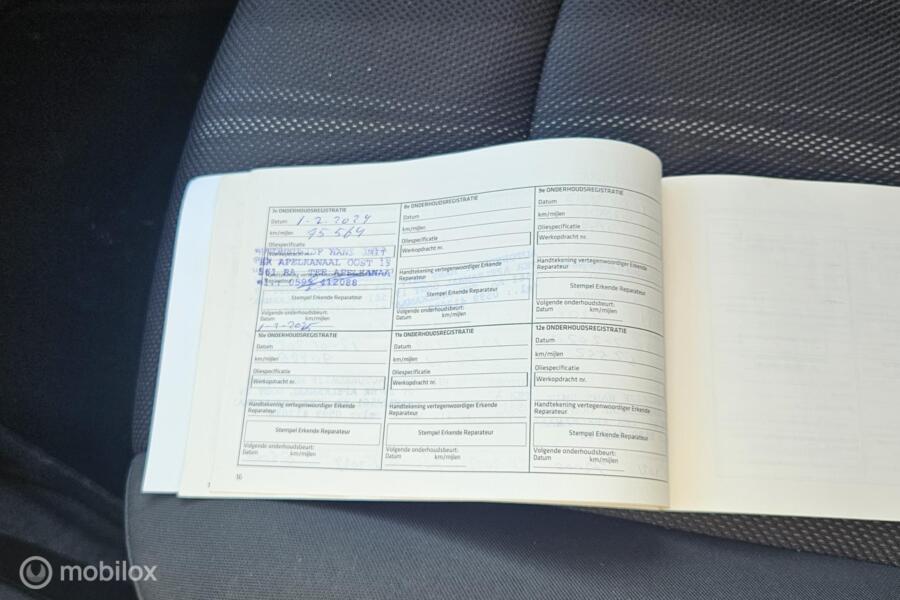 7e ONDERHOUDSREGISTRATIE
Datum 1-2-2024
km/mijlen 95 564
Oliespecificatie
Werkopdracht nr.
EX APELKANAAL OOST 15
561 RA TER APELKANAA
0599 412088
Stempel Erkende Reparateur
Volgende onderhoudsbeurt:
Datum km/mijlen
1-2-2025
8e ONDERHOUDSREGISTRATIE
Datum
km/mijlen
Oliespecificatie
Werkopdracht nr.
Handtekening vertegenwoordiger Erkende
Reparateur
Stempel Erkende Reparateur
Volgende onderhoudsbeurt:
Datum km/mijlen
9e ONDERHOUDSREGISTRATIE
Datum
km/mijlen
Oliespecificatie
Werkopdracht nr.
Handtekening vertegenwoordiger Erkende
Reparateur
Stempel Erkende Reparateur
Volgende onderhoudsbeurt:
Datum km/mijlen
10e ONDERHOUDSREGISTRATIE
Datum
km/mijlen
Oliespecificatie
Werkopdracht nr.
Handtekening vertegenwoordiger Erkende
Reparateur
Stempel Erkende Reparateur
Volgende onderhoudsbeurt:
Datum km/mijlen
11e ONDERHOUDSREGISTRATIE
Datum
km/mijlen
Oliespecificatie
Werkopdracht nr.
Handtekening vertegenwoordiger Erkende
Reparateur
Stempel Erkende Reparateur
Volgende onderhoudsbeurt:
Datum km/mijlen
12e ONDERHOUDSREGISTRATIE
Datum
km/mijlen
Oliespecificatie
Werkopdracht nr.
Handtekening vertegenwoordiger Erkende
Reparateur
Stempel Erkende Reparateur
Volgende onderhoudsbeurt:
Datum km/mijlen
16
mobilox